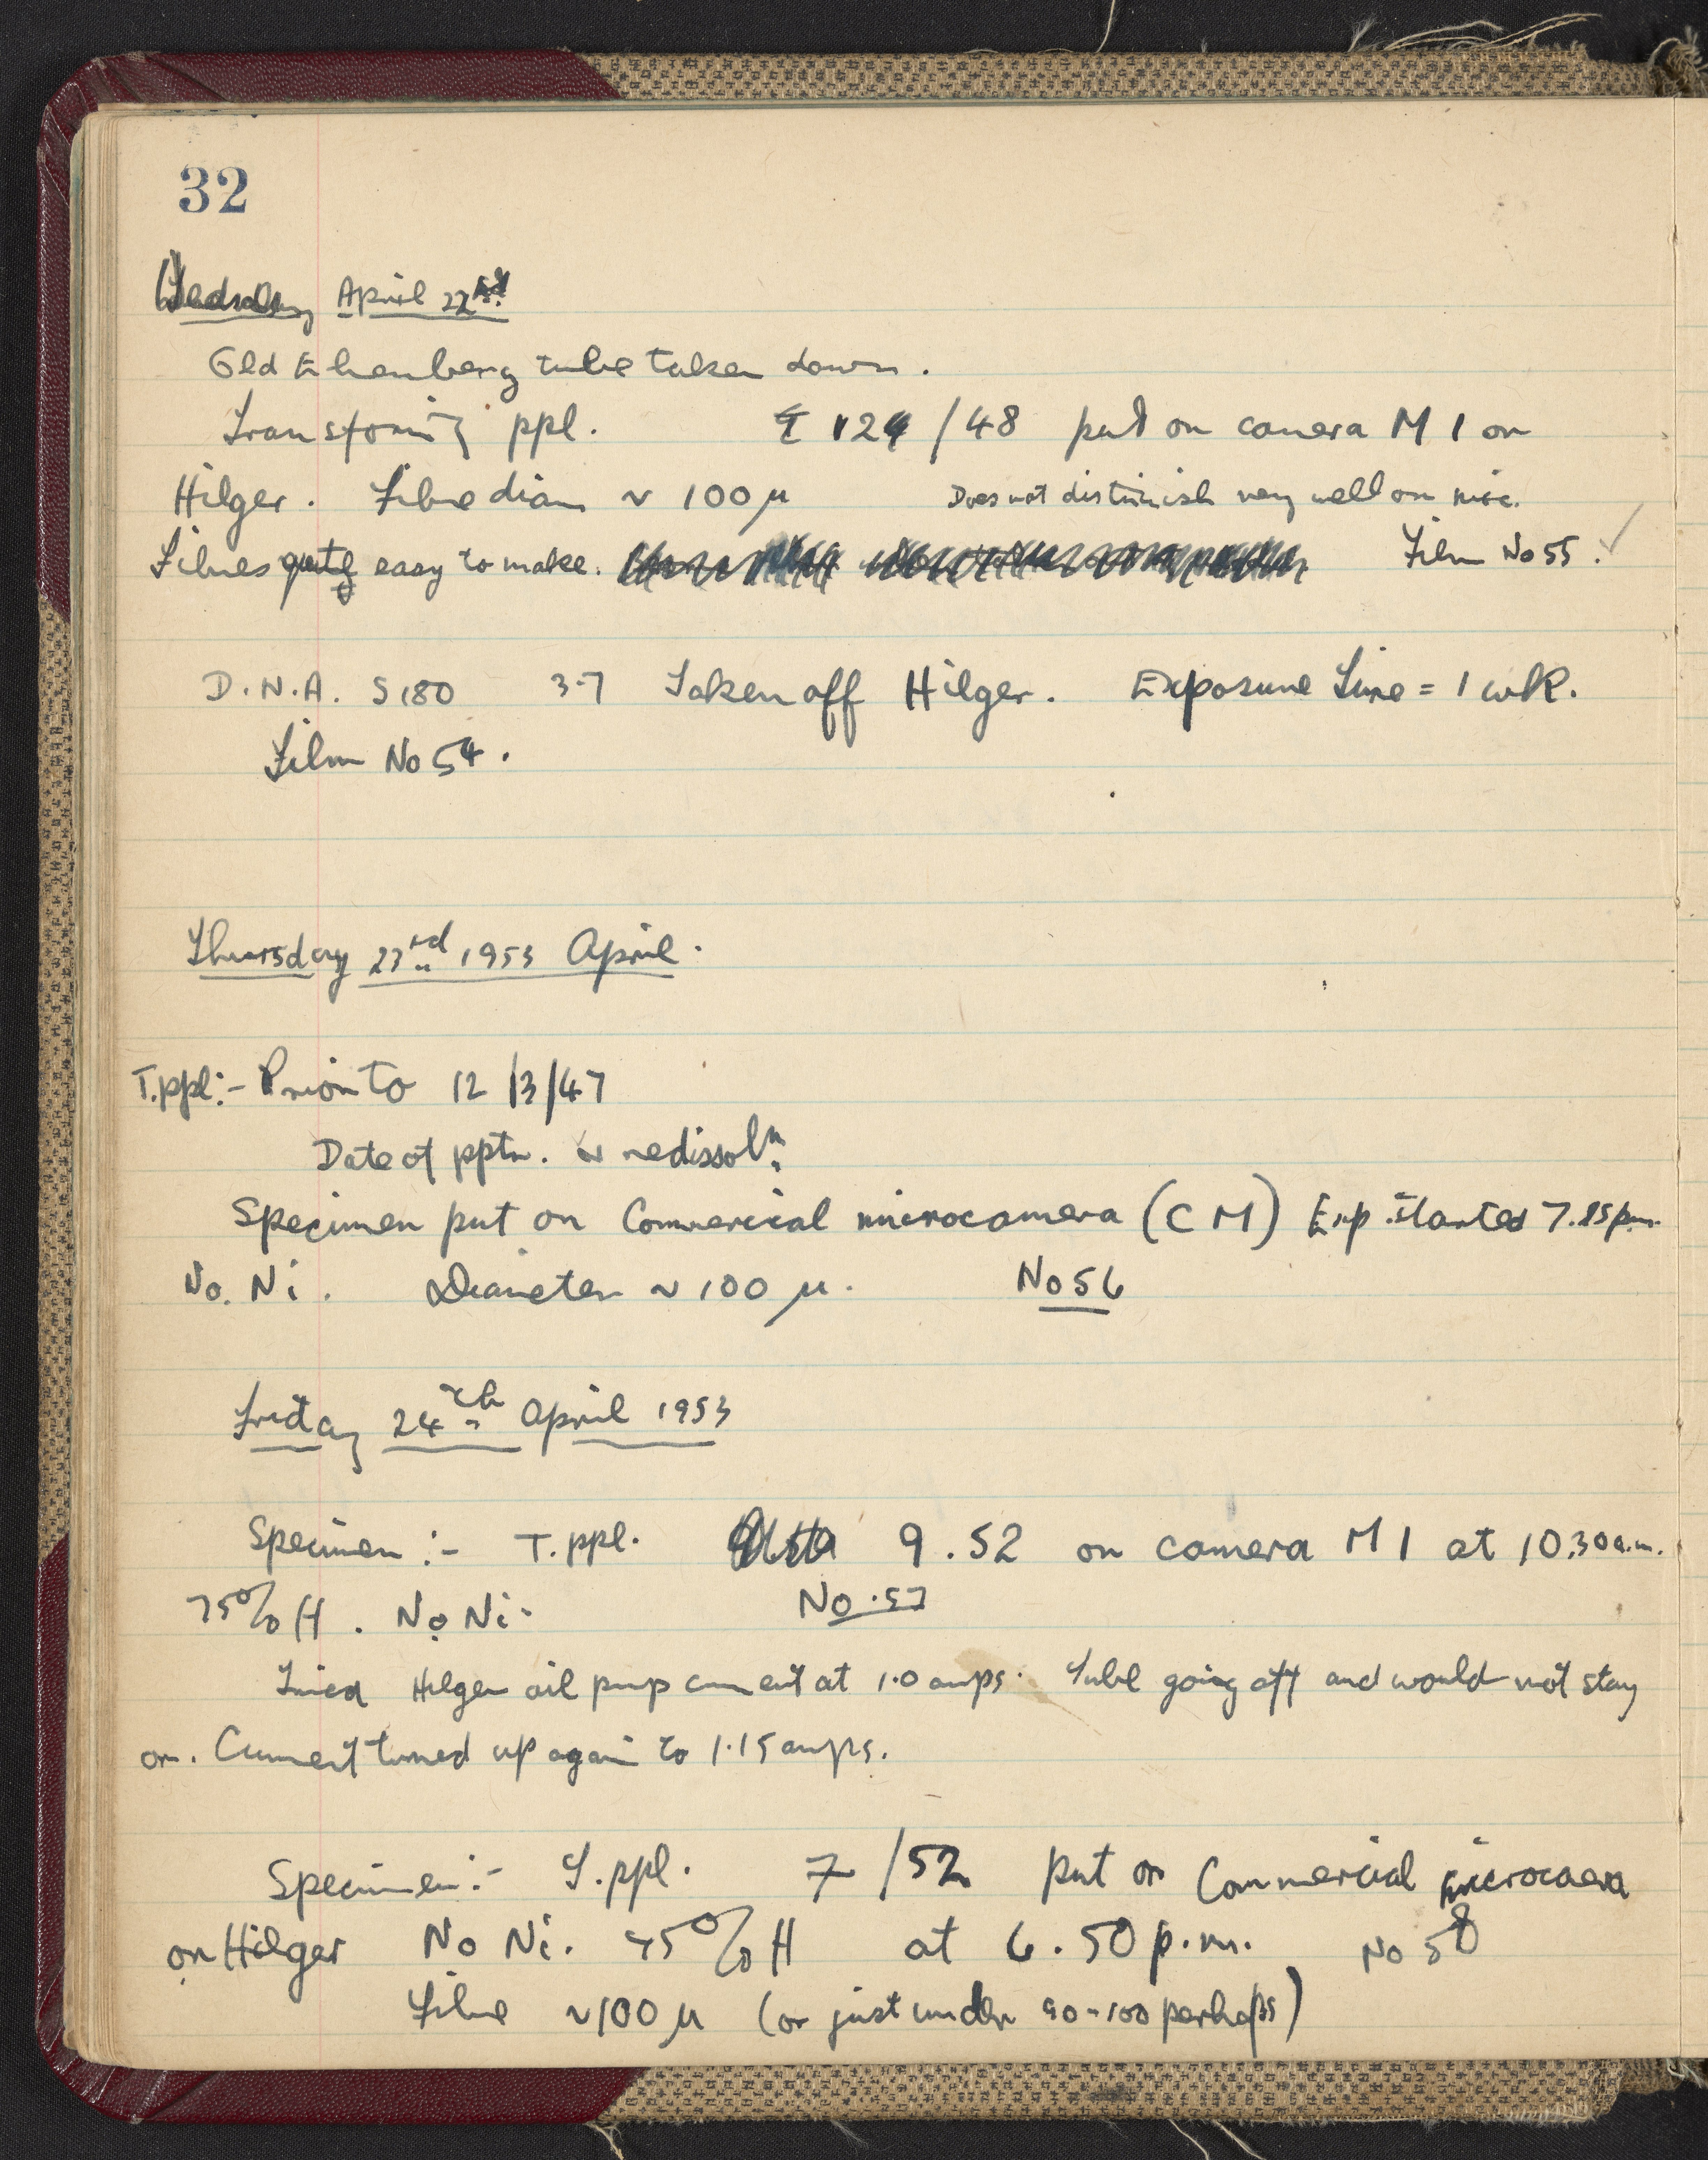 32
Wednesday April 22nd
Old Ehrenberg tube taken down.
Transforming ppl. 124/48 put on camera M 1 on
Hilger. Fibre diam ~ 100 μ Does not distinguish very well on mic.
Fibres quite easy to make. Film No 55. ✓
D.N.A. S180 3.7 Taken off Hilger. Exposure Time = 1 wk.
Film No 54.
Thursday 23rd 1953 April.
T.ppl:- Prior to 12/3/47
Date of pptn. redissoln.
Specimen put on Commercial microcamera (CM) Exp. started pm.
No. Ni. Diameter ~ 100 μ. No 56
Friday 24th April 1953
Specimen :- T.ppl. 9.52 on camera M 1 at 10.30 a.m.
75% H. No Ni. No. 57
Tried Hilger oil pump current at 1.0 amps. Tube going off and would not stay
on. Current turned up again to 1.15 amps.
Specimen:- T.ppl. 7/52 put on Commercial microcamera
on Hilger No Ni. 75% H at 6.50 p.m. No 58
Fibre ~100 μ (or just under 90-100 perhaps)